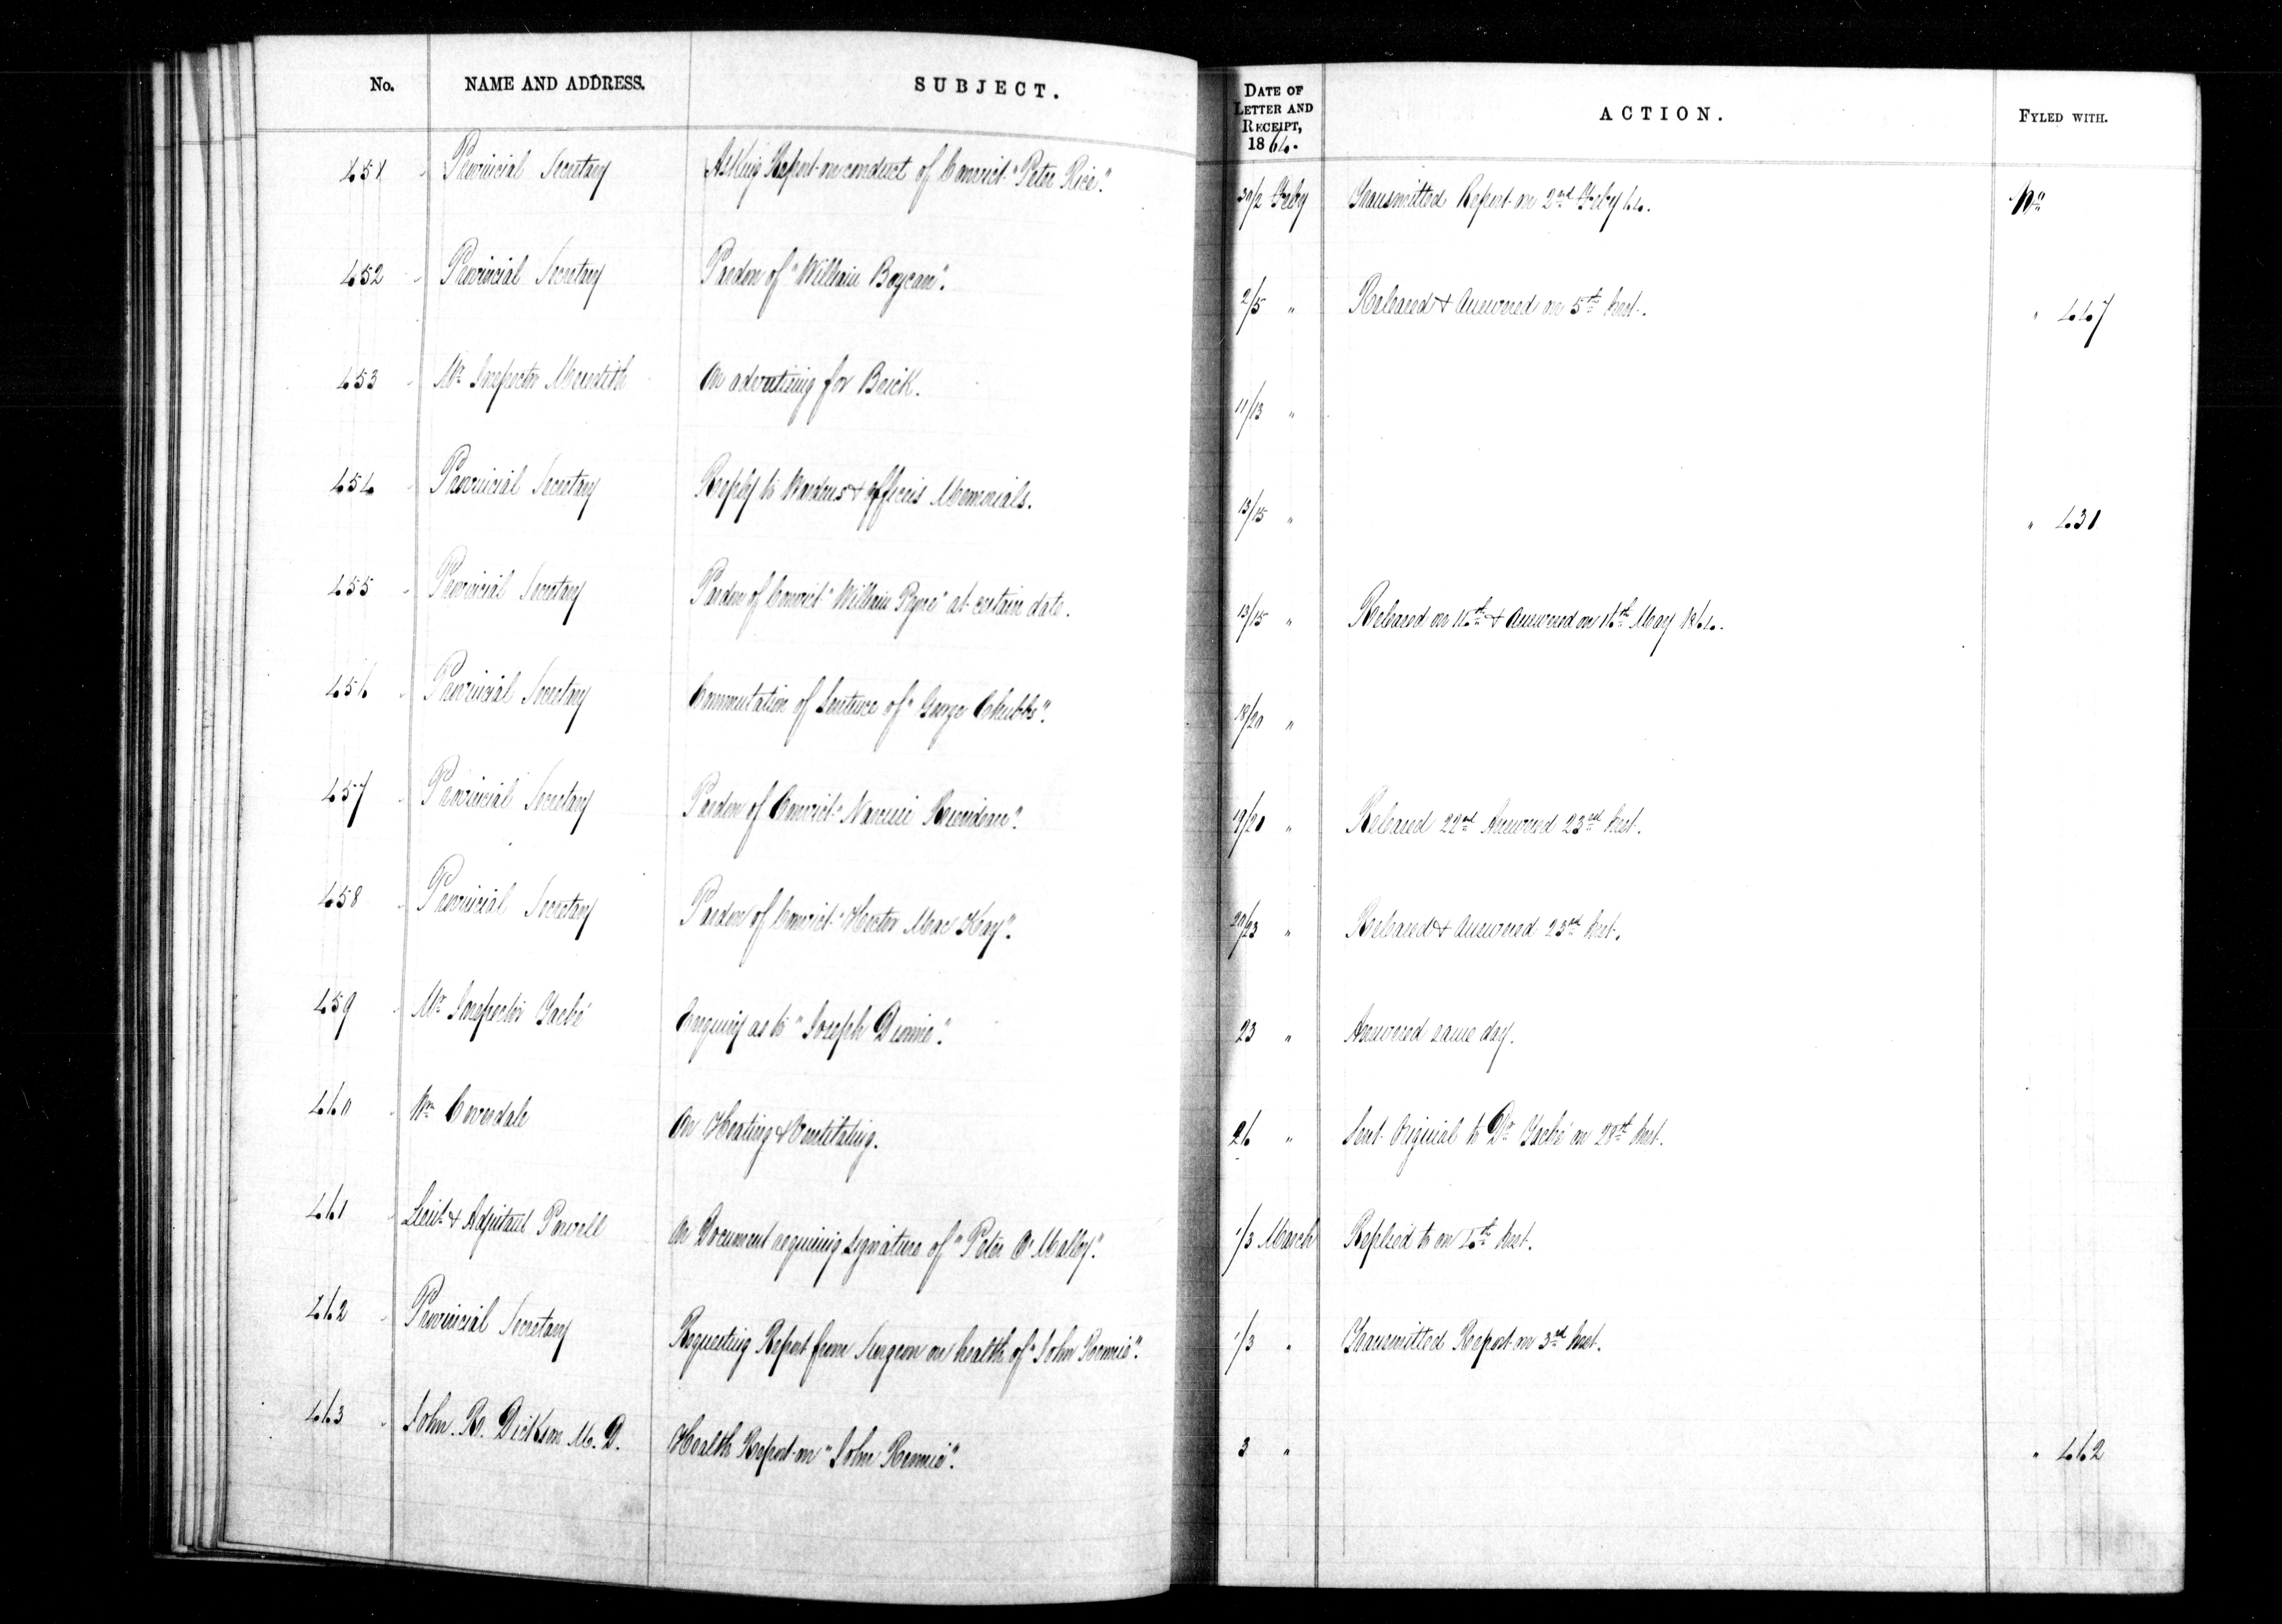 No. NAME AND ADDRESS. SUBJECT. DATE OF LETTER AND RECEIPT, 1864. ACTION. FYLED WITH.
451 Provincial Secretary Asking Report on conduct of Convict "Peter Rice". 30/2 Feby Transmitted Report on 2nd Feby 64.
452 " Provincial Secretary Pardon of "William Boycan". 2/5 " Released & Answered on 5th Inst. " 447
453 " Mr Inspector Meredith On advertising for Brick. 11/13 "
454 " Provincial Secretary Reply to Wardens & Officers Memorials. 13/15 " " 431
455 " Provincial Secretary Pardon of Convict "William Pyne" at certain date. 13/15 " Released on & Answered on May 1864.
456 " Provincial Secretary Commutation of Sentence of "George Chubbs". 18/20 "
457 " Provincial Secretary Pardon of Convict "Narcisse". 19/20 " Released 22nd Answered 23rd Inst.
458 " Provincial Secretary Pardon of Convict "Hector Mac Kay". 20/23 " Released & Answered 23rd Inst.
459 " Mr Inspector Taché Enquiry as to "Joseph". 23 " Answered same day.
460 " Wm Coverdale On Heating & Ventilating. 26 " Sent Original to Dr Taché on 28th Inst.
461 " Lieut & Adjutant Powell On Document requiring signature of "Peter O'Malley". 1/3 March Replied to on 4th Inst.
462 " Provincial Secretary Requesting Report from Surgeon on health of "John Rennie". 1/3 " Transmitted Report on 3rd Inst.
463 " John. R. Dickson M. D. Health Report on "John Rennie". 3 " " 462